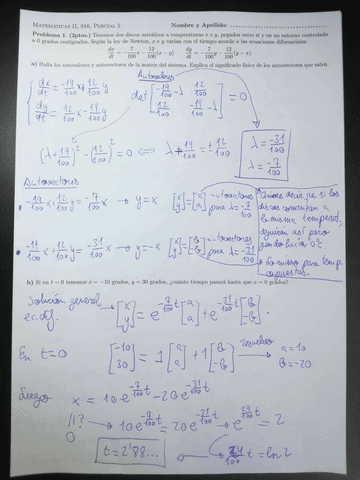 MATEMÁTICAS II, 916, PARCIAL 2 Nombre y Apellido:
Problema 1. (2ptos.) Tenemos dos discos metálicos a temperaturas x e y, pegados entre sí y en un entorno controlado
a 0 grados centígrados. Según la ley de Newton, x e y varían con el tiempo acorde a las ecuaciones diferenciales
dx/dt = -7/100 x - 12/100 (x - y) dy/dt = -7/100 y - 12/100 (y - x).
a) Halla los autovalores y autovectores de la matriz del sistema. Explica el significado físico de los autovectores que salen.
Autovalores
{ dx/dt = -19/100 x + 12/100 y
dy/dt = 12/100 x - 19/100 y
det [ -19/100 - λ 12/100
12/100 -19/100 - λ ] = 0
(λ + 19/100)² - (12/100)² = 0 ⇔ λ + 19/100 = ± 12/100
λ = -31/100
λ = -7/100
Autovectores
-19/100 x + 12/100 y = -7/100 x → y = x [x y] = [a a] autovectores para λ = -7/100
-19/100 x + 12/100 y = -31/100 x → y = -x [x y] = [b -b] autovectores para λ = -31/100
Quiere decir que si los
discos comienzan a
la misma temperat.,
siguen así pero
yendo hacia 0°C
Lo mismo para temp.
opuestas.
b) Si en t = 0 tenemos x = -10 grados, y = 30 grados, ¿cuánto tiempo pasará hasta que x = 0 grados?
Solución general
ec. dif.
[x y] = e^(-7/100 t) [a a] + e^(-31/100 t) [b -b]
En t = 0 [-10 30] = 1 [a a] + 1 [b -b] resuelvo
a = 10
b = -20
Luego x = 10 e^(-7/100 t) - 20 e^(-31/100 t)
11?
0 → 10 e^(-7/100 t) = 20 e^(-31/100 t) → e^(24/100 t) = 2
t = 2'88... ← 24/100 t = ln 2